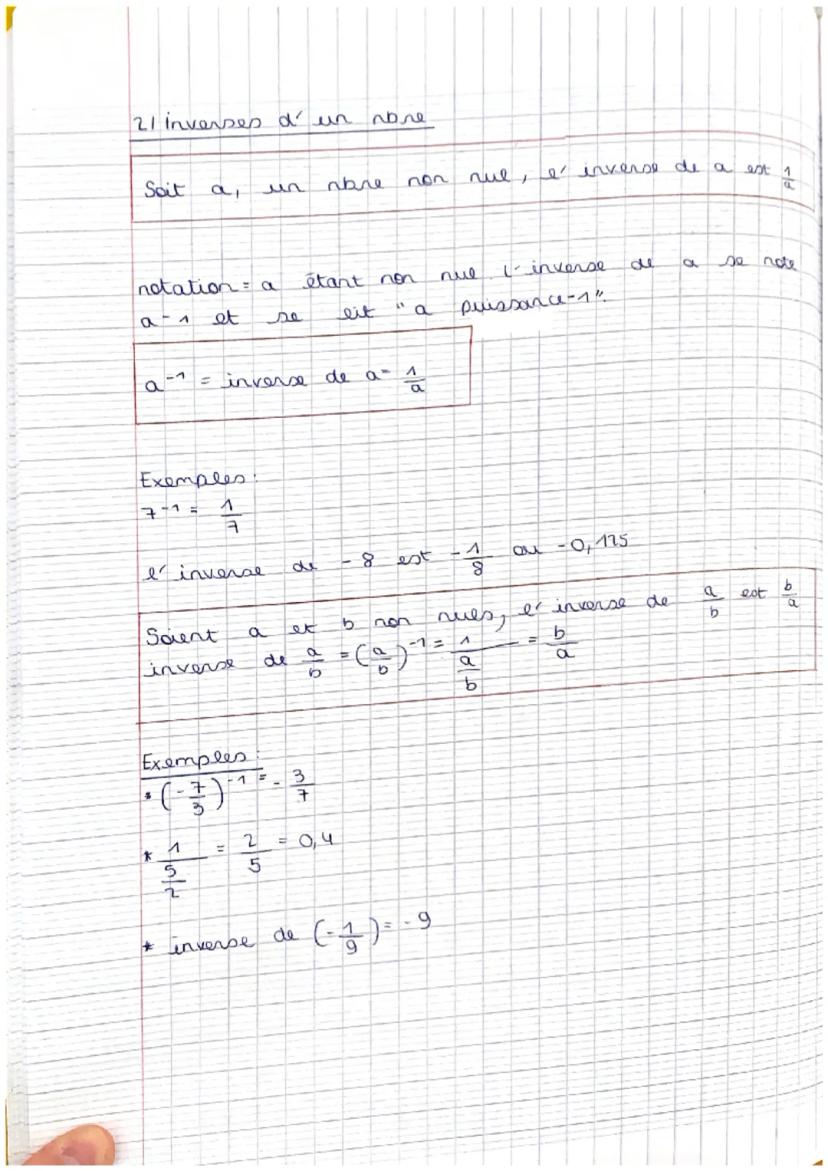 2/ inverses d' un nbre
Soit a, un nbre non nul, l' inverse de a est 1/a
notation = a étant non nul l'inverse de a se note
a⁻¹ et se lit "a puissance-1".
a⁻¹ = inverse de a = 1/a
Exemples :
7⁻¹ = 1/7
l' inverse de -8 est -1/8 ou -0,125
Soient a et b non nuls, l' inverse de a/b est b/a
inverse de a/b = (a/b)⁻¹ = 1/(a/b) = b/a
Exemples :
* (-7/3)⁻¹ = -3/7
* 1/(5/2) = 2/5 = 0,4
* inverse de (-1/9) = -9